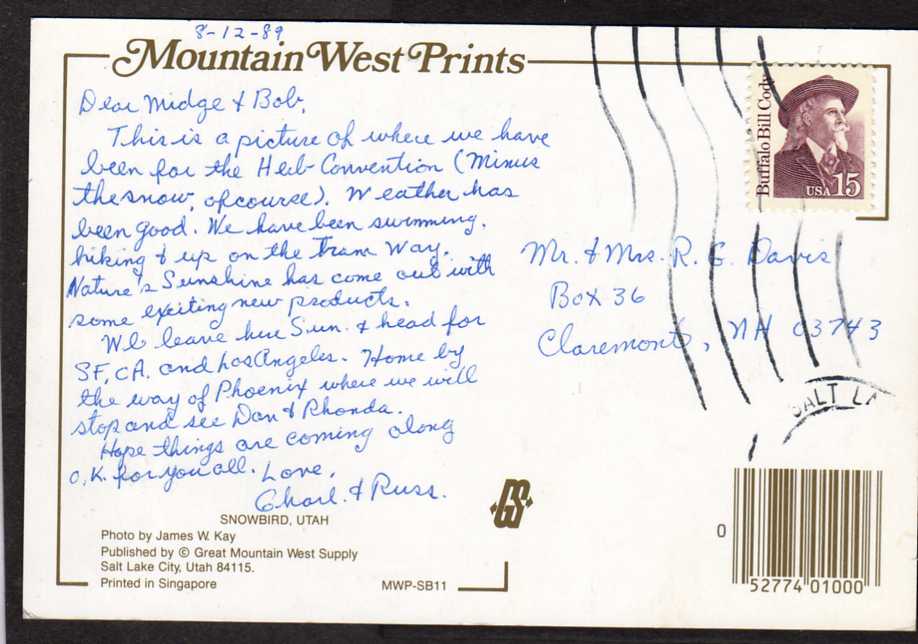 8-12-89
Mountain West Prints
Dear Midge & Bob,
This is a picture of where we have
been for the Herb Convention (Minus
the snow, of course). Weather has
been good. We have been swimming,
hiking & up on the Tram Way.
Nature's Sunshine has come out with
some exciting new products.
We leave here Sun. & head for
SF, CA. and Los Angeles. Home by
the way of Phoenix where we will
stop and see Dan & Rhonda.
Hope things are coming along
O.K. for you all. Love,
Charl. & Russ.
Buffalo Bill Cody
USA 15
Mr. & Mrs. R. G. Davis
Box 36
Claremont, NH 03743
SALT LA
GS
SNOWBIRD, UTAH
Photo by James W. Kay
Published by © Great Mountain West Supply
Salt Lake City, Utah 84115.
Printed in Singapore
MWP-SB11
0
52774 01000